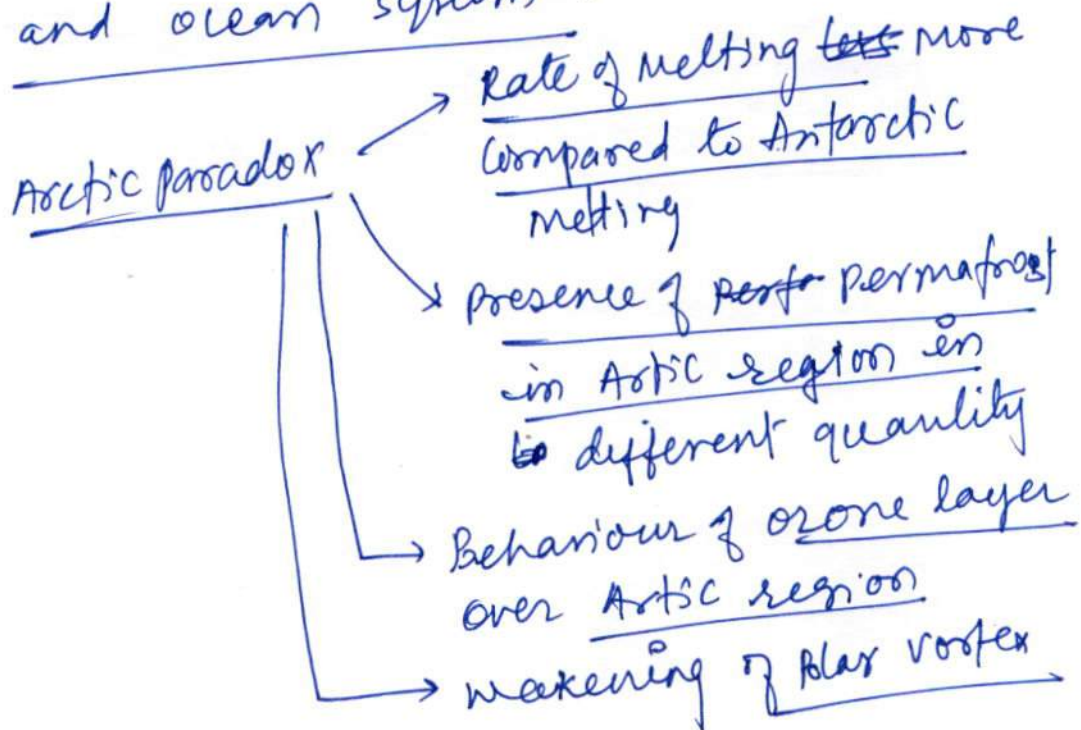 and ocean systems
Arctic paradox
Rate of Melting less More
Compared to Antarctic
Melting
Presence of perfr permafrost
in Artic region in
different quantity
Behaviour of ozone layer
over Artic region
weakening of Polar vortex